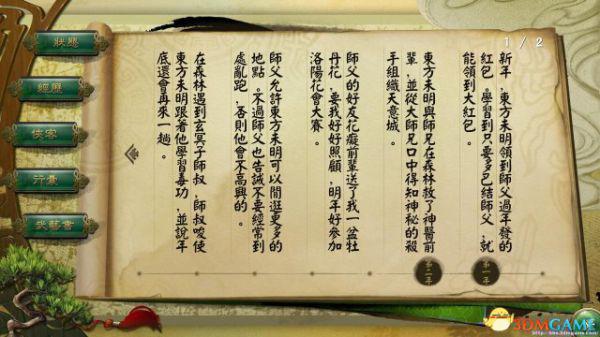 1 / 2
狀態
經歷
俠客
行囊
武藝書
第一年
新年，東方未明領到師父過年發的
紅包。學習到只要多巴結師父，就
能領到大紅包。
第二年
東方未明與師兄在森林救了神醫前
輩，並從大師兄口中得知神秘的殺
手組織天意城。
師父的好友花癡前輩送了我一盆牡
丹花，要我好好照顧，明年好參加
洛陽花會大賽。
師父允許東方未明可以閒逛更多的
地點。不過師父也告誡不要經常到
處亂跑，否則他會不高興的。
在森林遇到玄冥子師叔，師叔唆使
東方未明跟著他學習毒功，並說年
底還會再來一趟。
3DMGAME